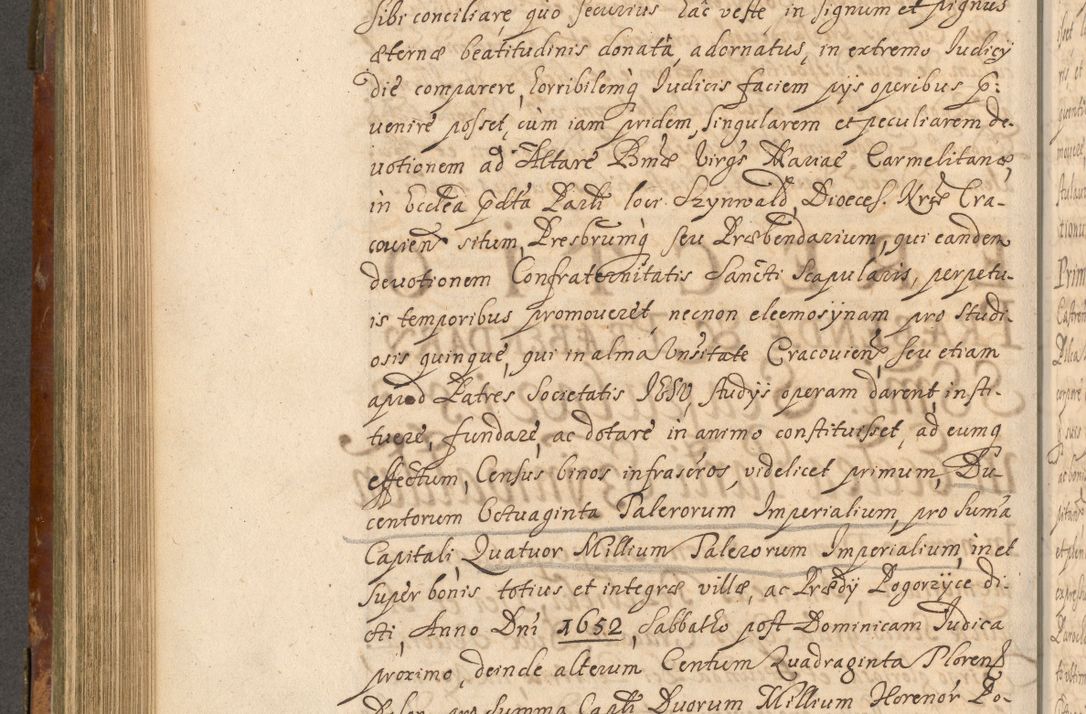 sibi conciliare, quo securius hac veste in signum et pignus
æternæ beatitudinis donata, adornatus, in extremo Judicij
die comparere, horribilemq Judicis faciem pijs operibus p̄:
uenire posset, cùm iam pridem, singularem et peculiarem de-
uotionem ad Altare Bmæ Virgs Mariae Carmelitanæ,
in Ecclea p̄dta Parli loci Szynwałd, Dioeces. Nræ Cra-
couien situm, Presbrumq seu Præbendarium, qui eandem
deuotionem Confraternitatis Sancti Scapularis, perpetu-
is temporibus promoueret, necnon eleemosynam pro studi-
osis quinque, qui in alma Vnsitate Cracouien, seu etiam
apud Patres Societatis JESV, studijs operam darent, insti-
tuere, fundare, ac dotare in animo constituisset, ad eumq
effectum, Census binos infrascros, videlicet primum, Du-
centorum Octuaginta Talerorum Imperialium, pro suma
Capitali, Quatuor Millium Talerorum Imperialium, in et
super bonis totius et integræ villæ, ac Prædij Pogorzyce di-
cti, Anno Dni 1652, Sabbatho post Dominicam Judica
proximo, deinde alterum Centum Quadraginta Floren
Polon pro summa Capli Duorum Millium Florenor Po-